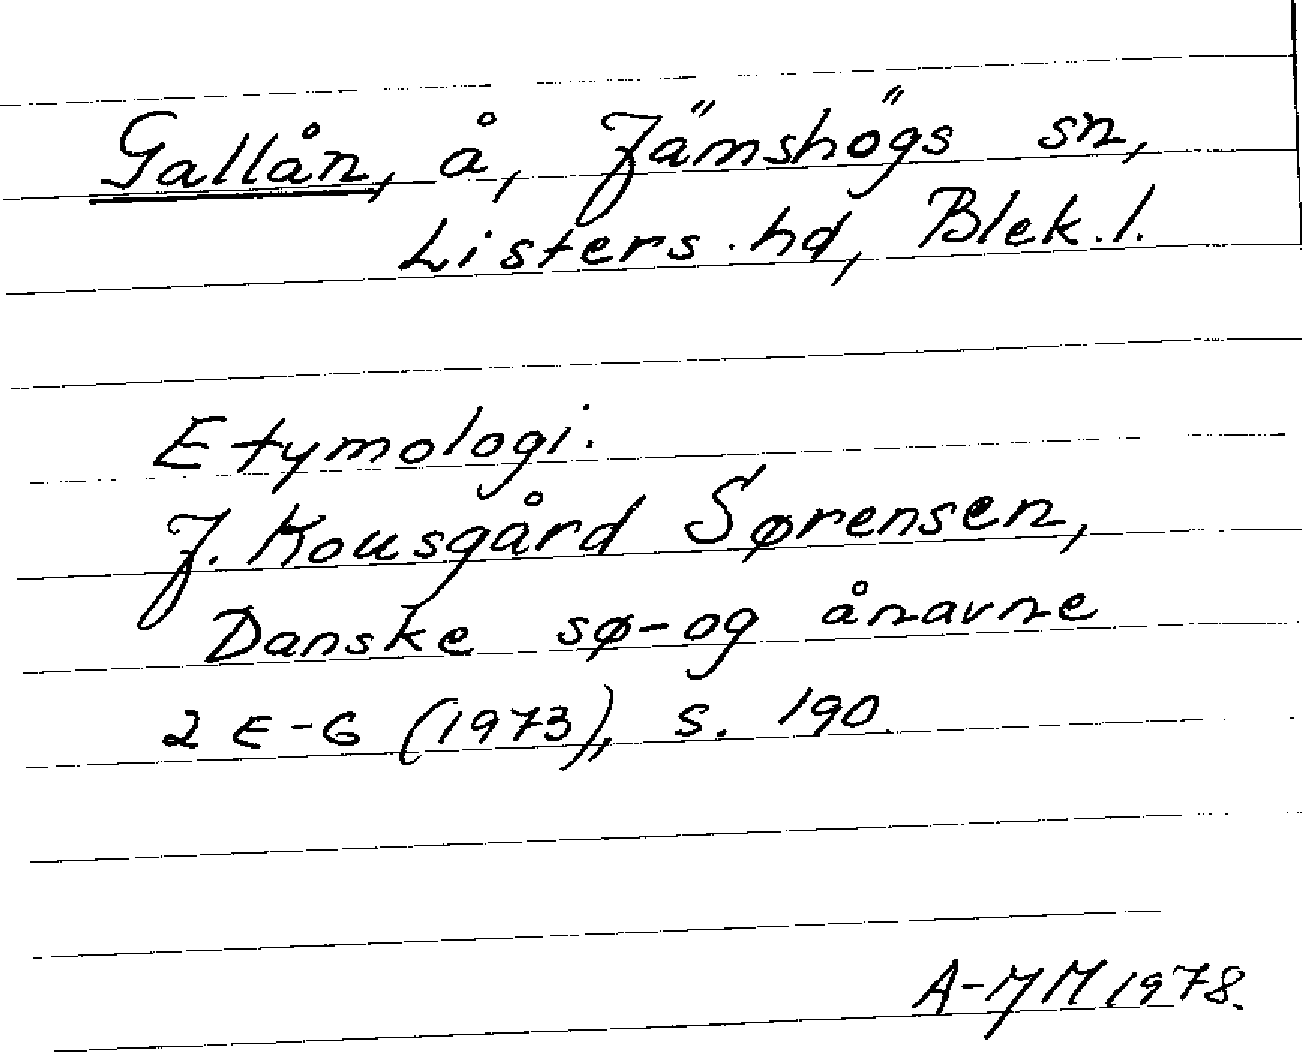 Gallån, å, Jämshögs sn,
Listers hd, Blek. l.
Etymologi:
J. Kousgård Sørensen,
Danske sø- og ånavne
2 E-G (1973), s. 190.
A-MM 1978.